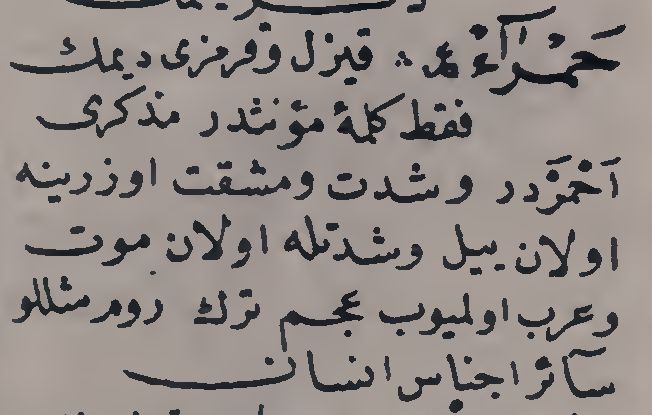 حَمْرَآءْ عر قيزل وقرمزى ديمك
فقط كلمۀ مؤنثدر مذكرى
اَحْمَرْدر وشدت ومشقت اوزرينه
اولان ييل وشدتله اولان موت
وعرب اولميوب عجم ترك روم مثللو
سآئر اجناس انسان